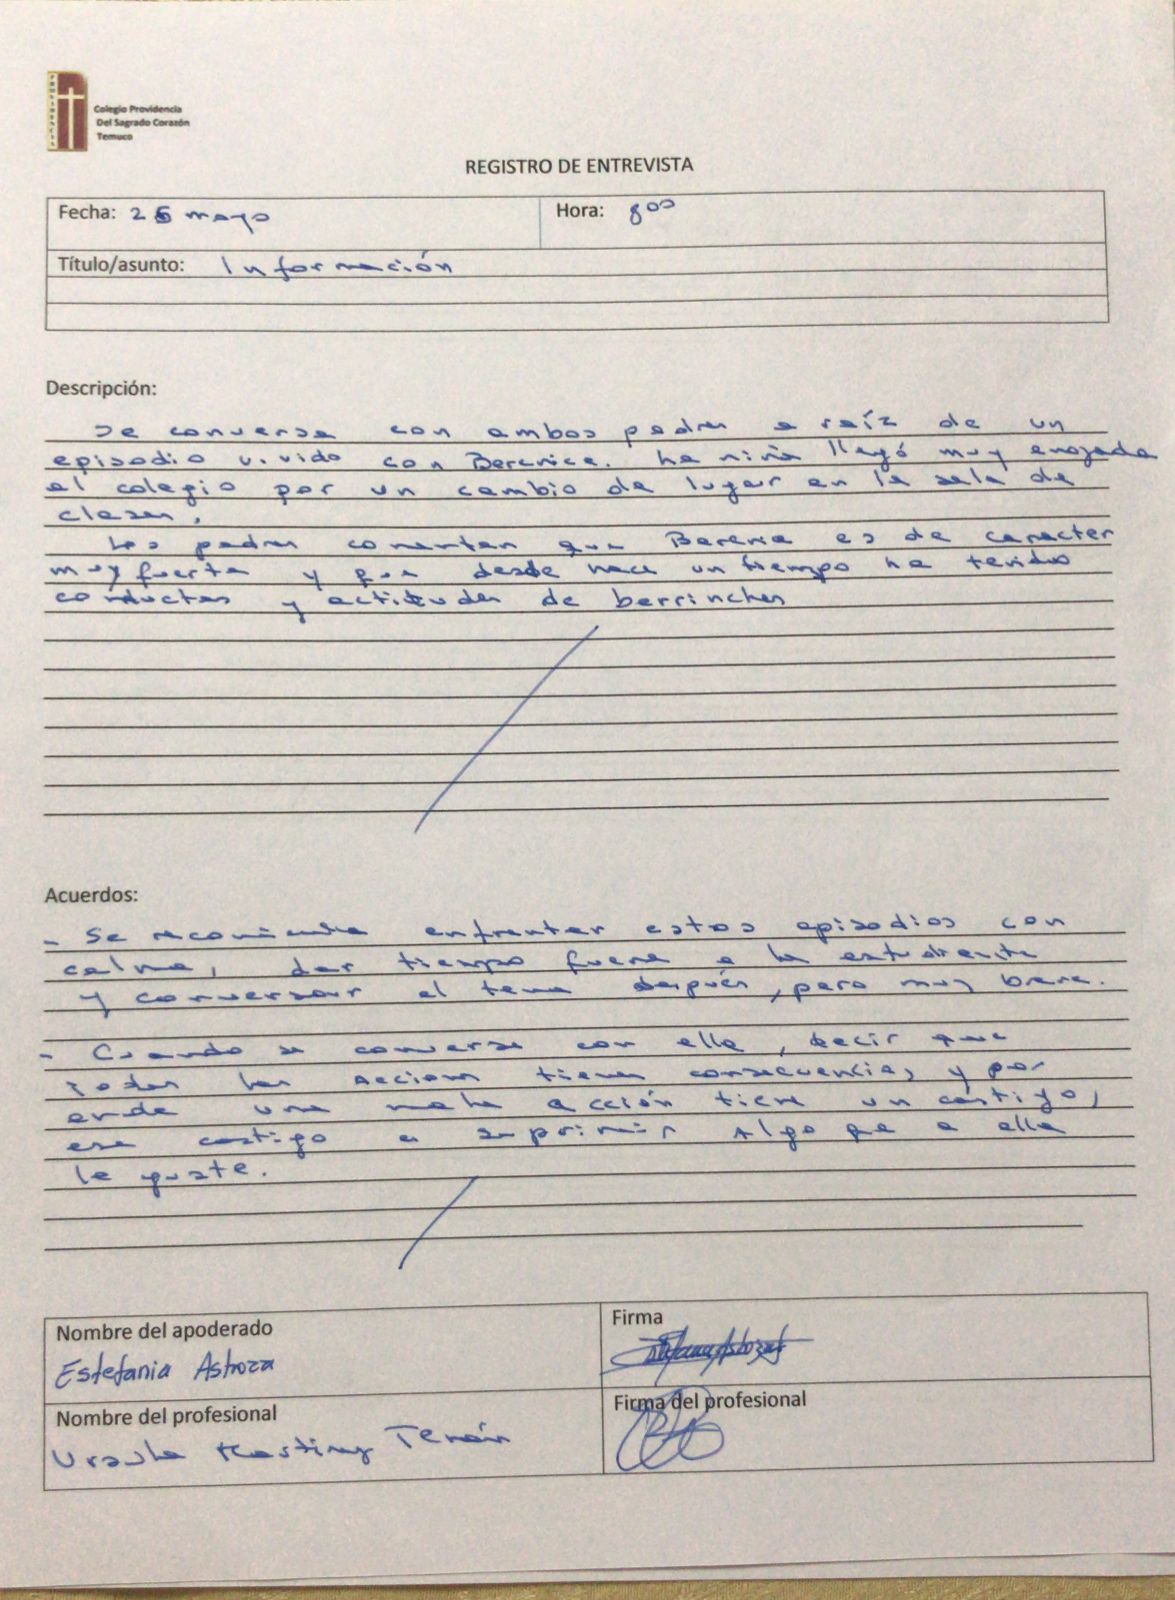 PROVIDENCIA
Colegio Providencia
Del Sagrado Corazón
Temuco
REGISTRO DE ENTREVISTA
Fecha: 26 mayo
Hora: 800
Título/asunto: Información
Descripción:
Se conversa con ambos padres a raíz de un
episodio vivido con Berenice. La niña llegó muy enojada
al colegio por un cambio de lugar en la sala de
clases.
Los padres comentan que Berenice es de carácter
muy fuerte y que desde hace un tiempo ha tenido
conductas y actitudes de berrinches
Acuerdos:
- Se recomienda enfrentar estos episodios con
calma, dar tiempo fuera a la estudiante
y conversar el tema después, pero muy breve.
- Cuando se converse con ella, decir que
todas las acciones tienen consecuencias, y por
ende una mala acción tiene un castigo,
ese castigo es suprimir algo que a ella
le guste.
Nombre del apoderado
Estefania Astroza
Firma
Nombre del profesional
Ursula Kesting Terán
Firma del profesional